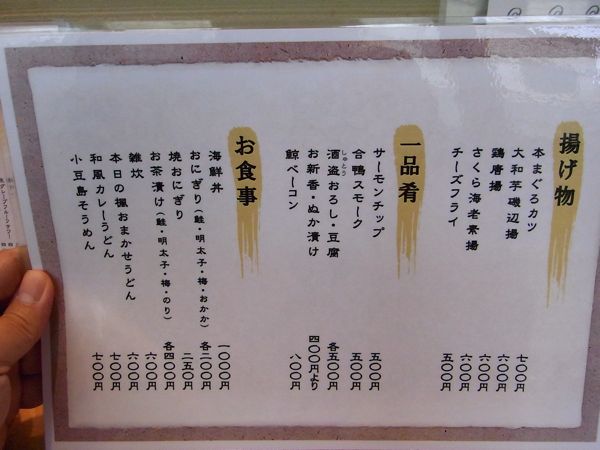 揚げ物
本まぐろカツ 七〇〇円
大和芋磯辺揚 六〇〇円
鶏唐揚 六〇〇円
さくら海老素揚 六〇〇円
チーズフライ 五〇〇円
一品肴
サーモンチップ 五〇〇円
合鴨スモーク 五〇〇円
しゅとう
酒盗おろし・豆腐 各五〇〇円
お新香・ぬか漬け 四〇〇円より
鯨ベーコン 八〇〇円
お食事
海鮮丼 一〇〇〇円
おにぎり(鮭・明太子・梅・おかか) 各二〇〇円
焼おにぎり 二五〇円
お茶漬け(鮭・明太子・梅・のり) 各四〇〇円
雑炊 六〇〇円
本日の楓おまかせうどん 六〇〇円
和風カレーうどん 七〇〇円
小豆島そうめん 七〇〇円